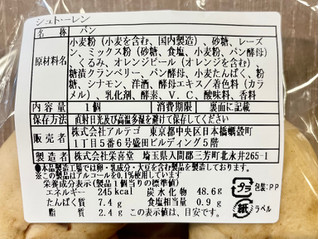 シュトーレン
名称 パン
原材料名 小麦粉（小麦を含む、国内製造）、砂糖、レーズ
ン、ミックス粉（砂糖、食塩、小麦粉、パン酵母）
、くるみ、オレンジピール（オレンジを含む）、
糖漬クランベリー、パン酵母、小麦たんぱく、粉
糖、シナモン、洋酒、酵母エキス/着色料（カラ
メル）、乳化剤、酵素、V.C、酸味料、香料
内容量 1個 消費期限 裏面に記載
保存方法 直射日光及び高温多湿を避けて保存してください
販売者 株式会社アルテゴ 東京都中央区日本橋蛎殻町
1丁目5番6号盛田ビルディング5階
製造者 株式会社栄喜堂 埼玉県入間郡三芳町北永井265-1
●本品製造工場では卵・乳成分・大豆を含む製品を製造しています。
※この製品はアルコールを0.1%使用しています
栄養成分表示(製品1個当りの標準値)
エネルギー 245kcal 炭水化物 48.6g
たんぱく質 7.4g 食塩相当量 0.9g
脂質 2.4g この表示値は、目安です。
プラ 包装:PP
紙 ラベル